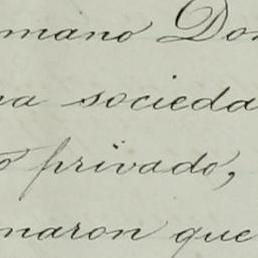 rmano Don
na socieda
o privado,
naron que